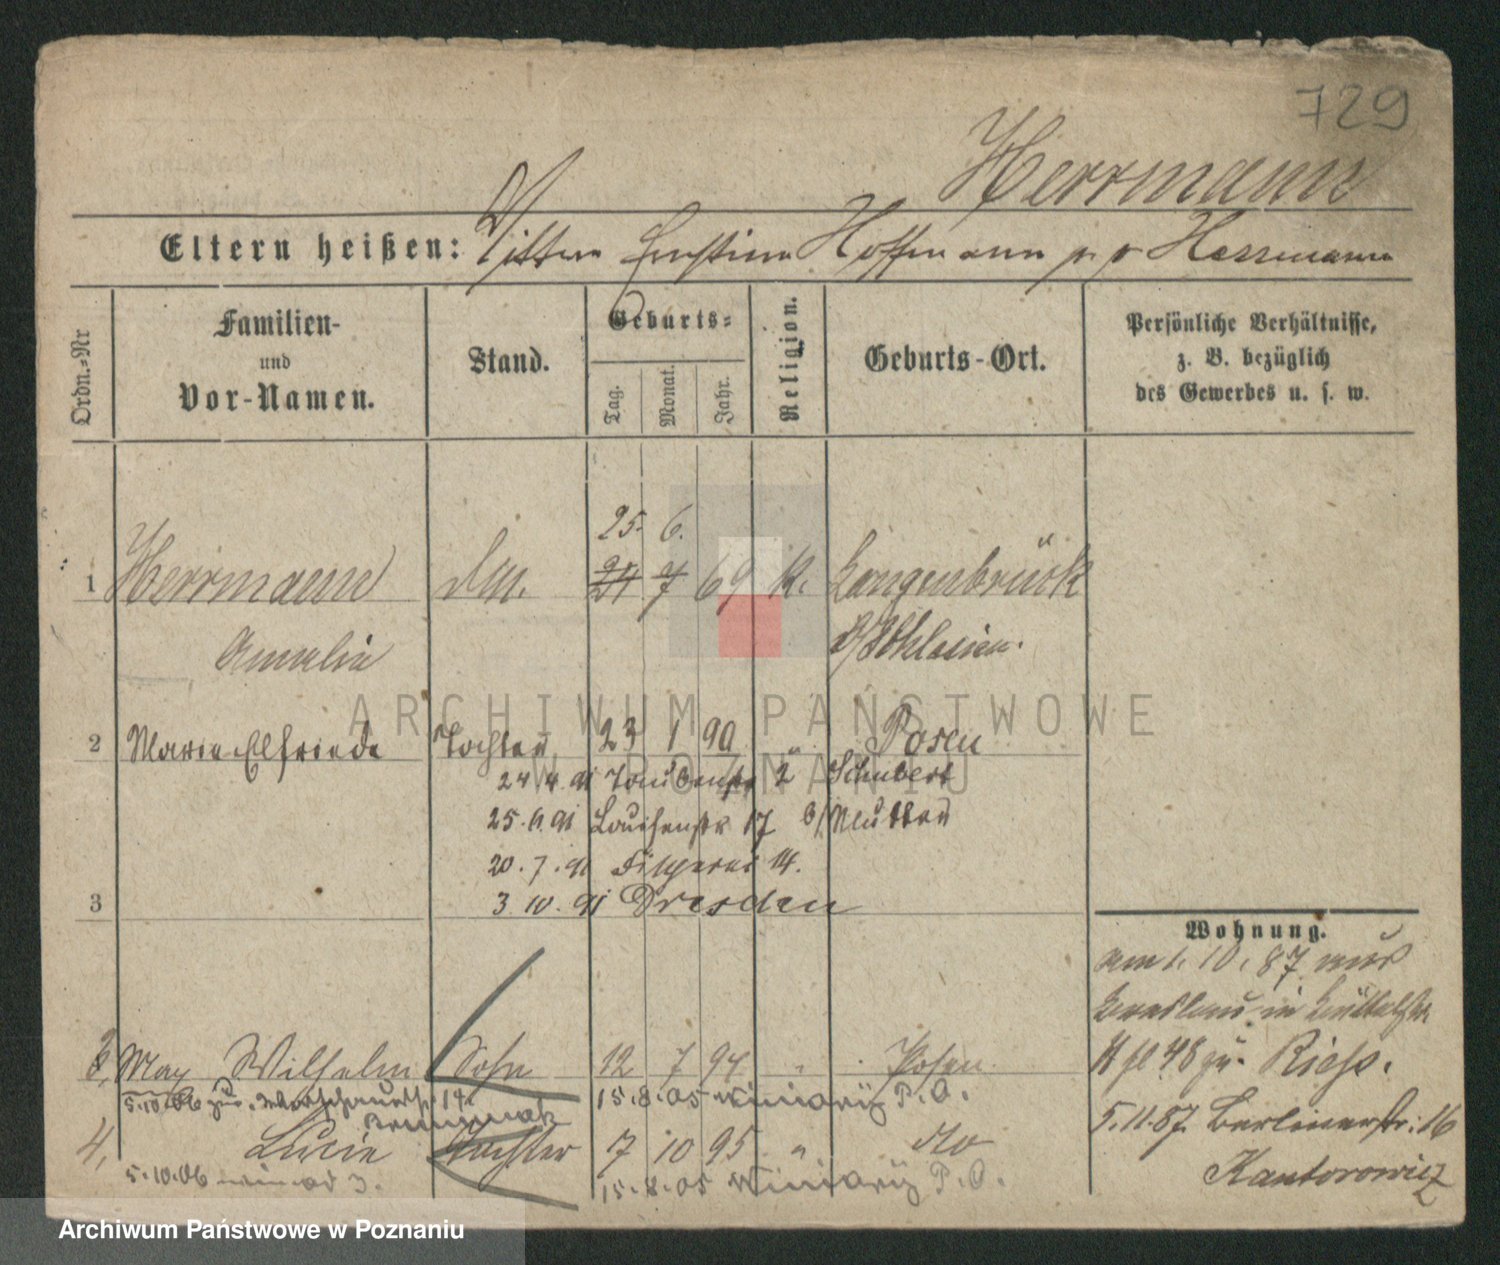 729
Herrmann
Eltern heißen: Ernstine Hoffmann Herrmann
Ordn.-Nr
Familien-
und
Vor-Namen.
Stand.
Geburts-
Tag.
Monat.
Jahr.
Religion.
Geburts-Ort.
Persönliche Verhältnisse,
z. B. bezüglich
des Gewerbes u. s. w.
25. 6.
1 Herrmann 24 7 69 K. Langenbrück
Amalie O/Schlesien.
ARCHIWUM PAŃSTWOWE
W POZNANIU
2 Marie Elfriede Tochter 23 1 90 " Posen
24 4. 91 2 Schubert
25. 6. 91 17 b/Mutter
20. 7. 91 Fischerei 14.
3 3. 10. 91 Dresden
Wohnung.
am 1. 10. 87 aus
Breslau in
48 Riess.
3, Max Wilhelm Sohn 12 7 94 " Posen
5.10.06 14. 15.8.05 Winiary P.O.
5.11.87. Berlinerstr. 16
4, Lucie Tochter 7 10 95 " dto
Kantorowicz
5.10.06 wie ad 3. 15.8.05 Winiary P.O.
Archiwum Państwowe w Poznaniu